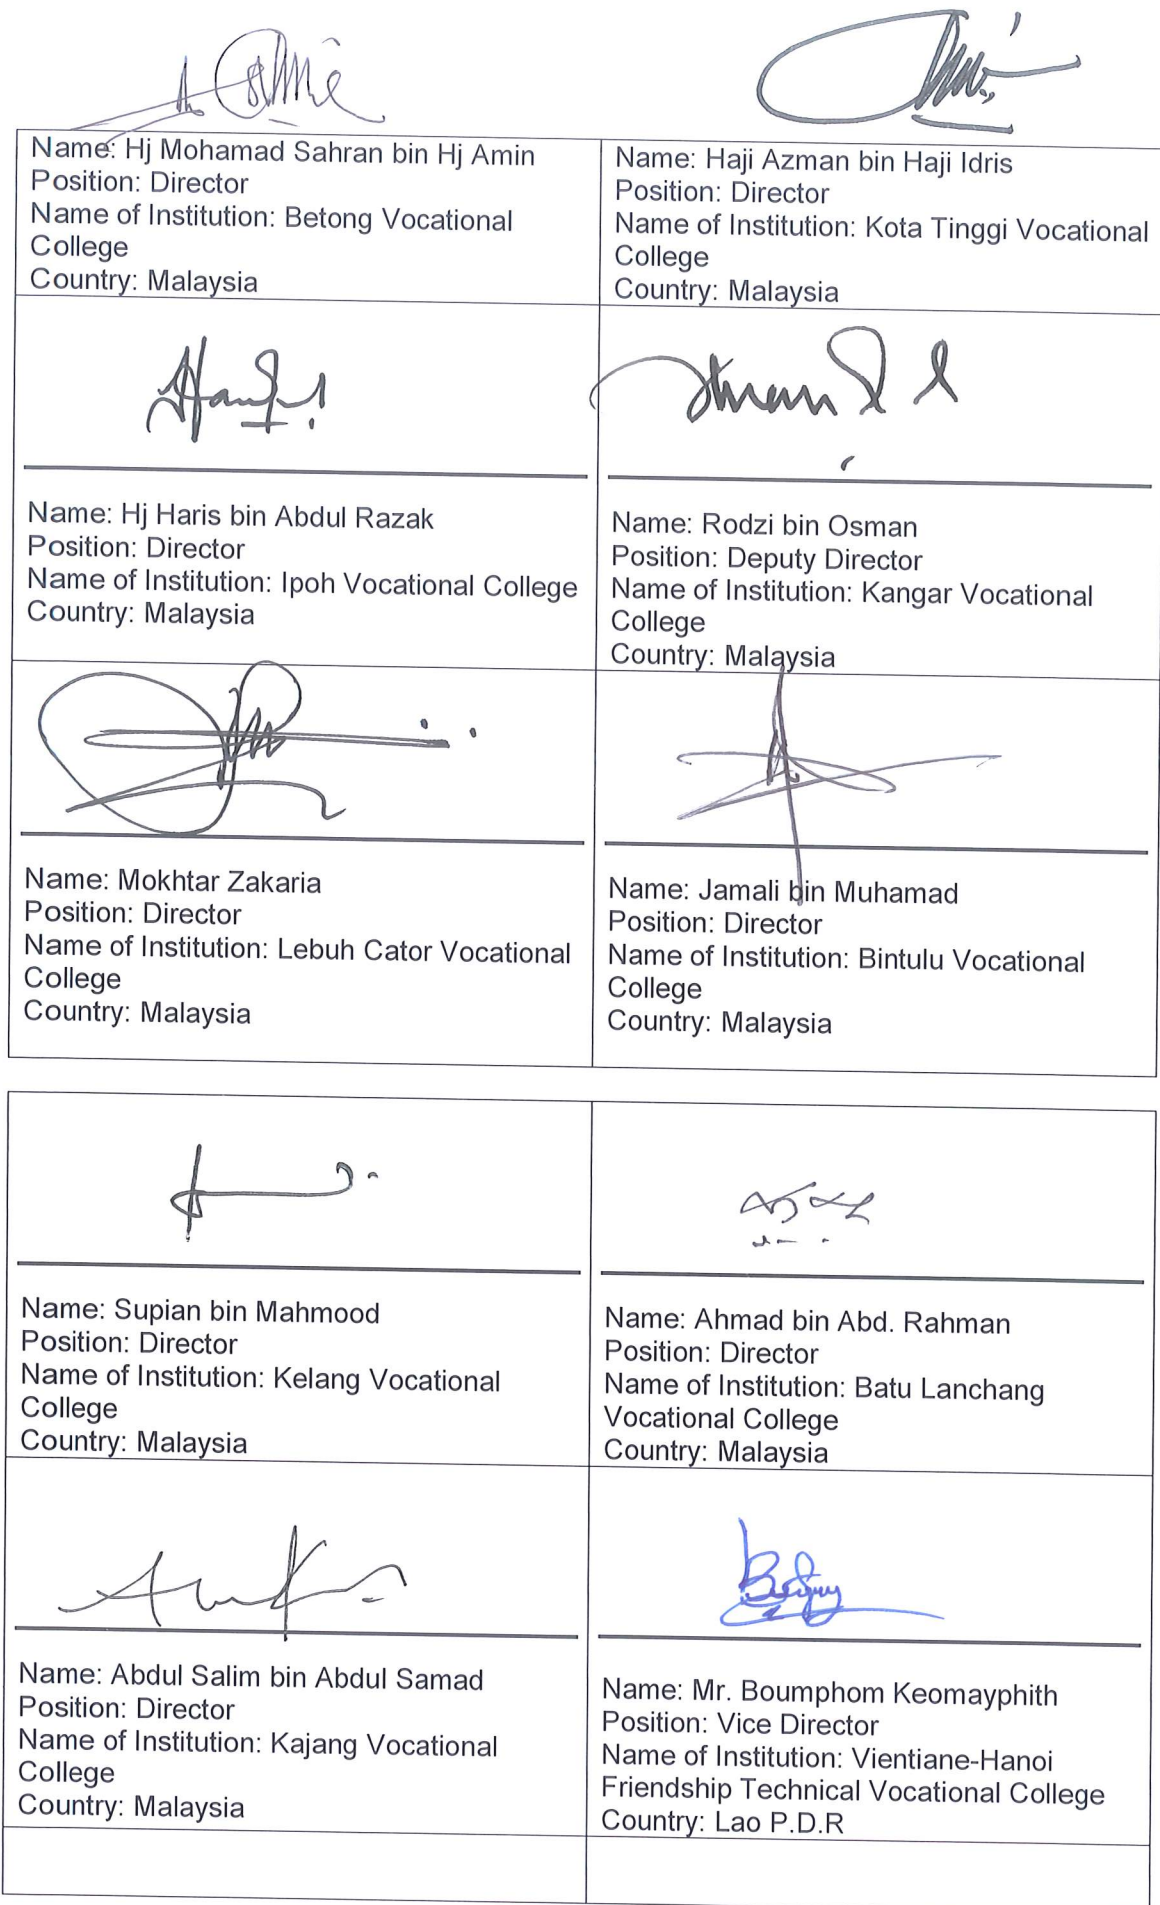 Name: Hj Mohamad Sahran bin Hj Amin
Position: Director
Name of Institution: Betong Vocational
College
Country: Malaysia
Name: Haji Azman bin Haji Idris
Position: Director
Name of Institution: Kota Tinggi Vocational
College
Country: Malaysia
Name: Hj Haris bin Abdul Razak
Position: Director
Name of Institution: Ipoh Vocational College
Country: Malaysia
Name: Rodzi bin Osman
Position: Deputy Director
Name of Institution: Kangar Vocational
College
Country: Malaysia
Name: Mokhtar Zakaria
Position: Director
Name of Institution: Lebuh Cator Vocational
College
Country: Malaysia
Name: Jamali bin Muhamad
Position: Director
Name of Institution: Bintulu Vocational
College
Country: Malaysia
Name: Supian bin Mahmood
Position: Director
Name of Institution: Kelang Vocational
College
Country: Malaysia
Name: Ahmad bin Abd. Rahman
Position: Director
Name of Institution: Batu Lanchang
Vocational College
Country: Malaysia
Name: Abdul Salim bin Abdul Samad
Position: Director
Name of Institution: Kajang Vocational
College
Country: Malaysia
Name: Mr. Boumphom Keomayphith
Position: Vice Director
Name of Institution: Vientiane-Hanoi
Friendship Technical Vocational College
Country: Lao P.D.R